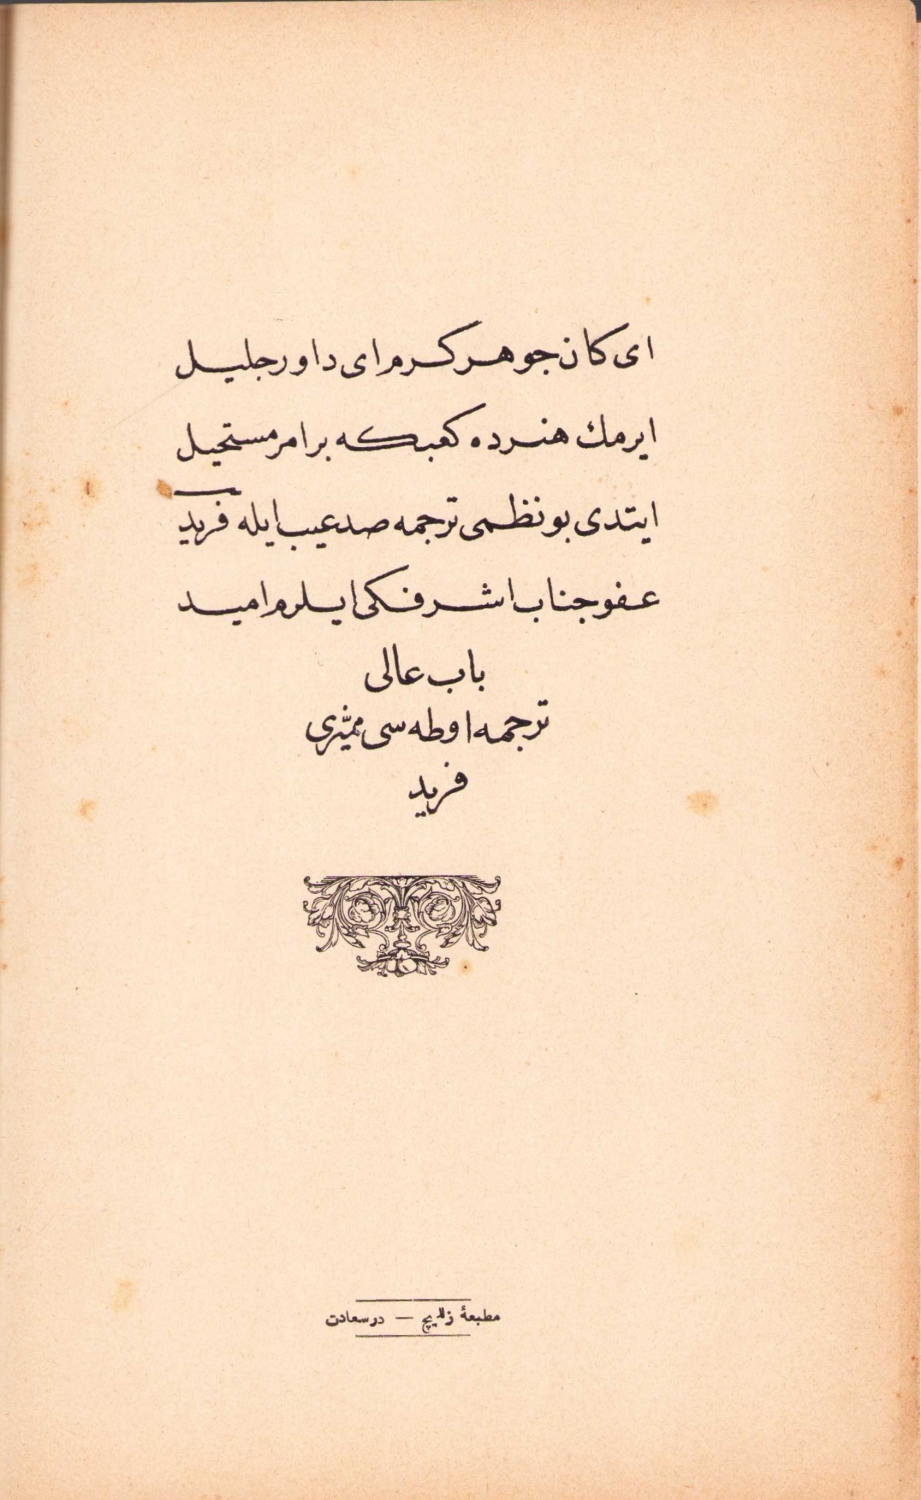 ای كان جوهر كرم ای داور جلیل
ایرمك هنرده كعبكه بر امر مستحیل
ایتدی بو نظمی ترجمه صد عیب ایله فرید
عفو جناب اشرفكی ایلرم امید
باب عالی
ترجمه اوطه سی ممیّزی
فرید
مطبعهٔ زللیچ — درسعادت